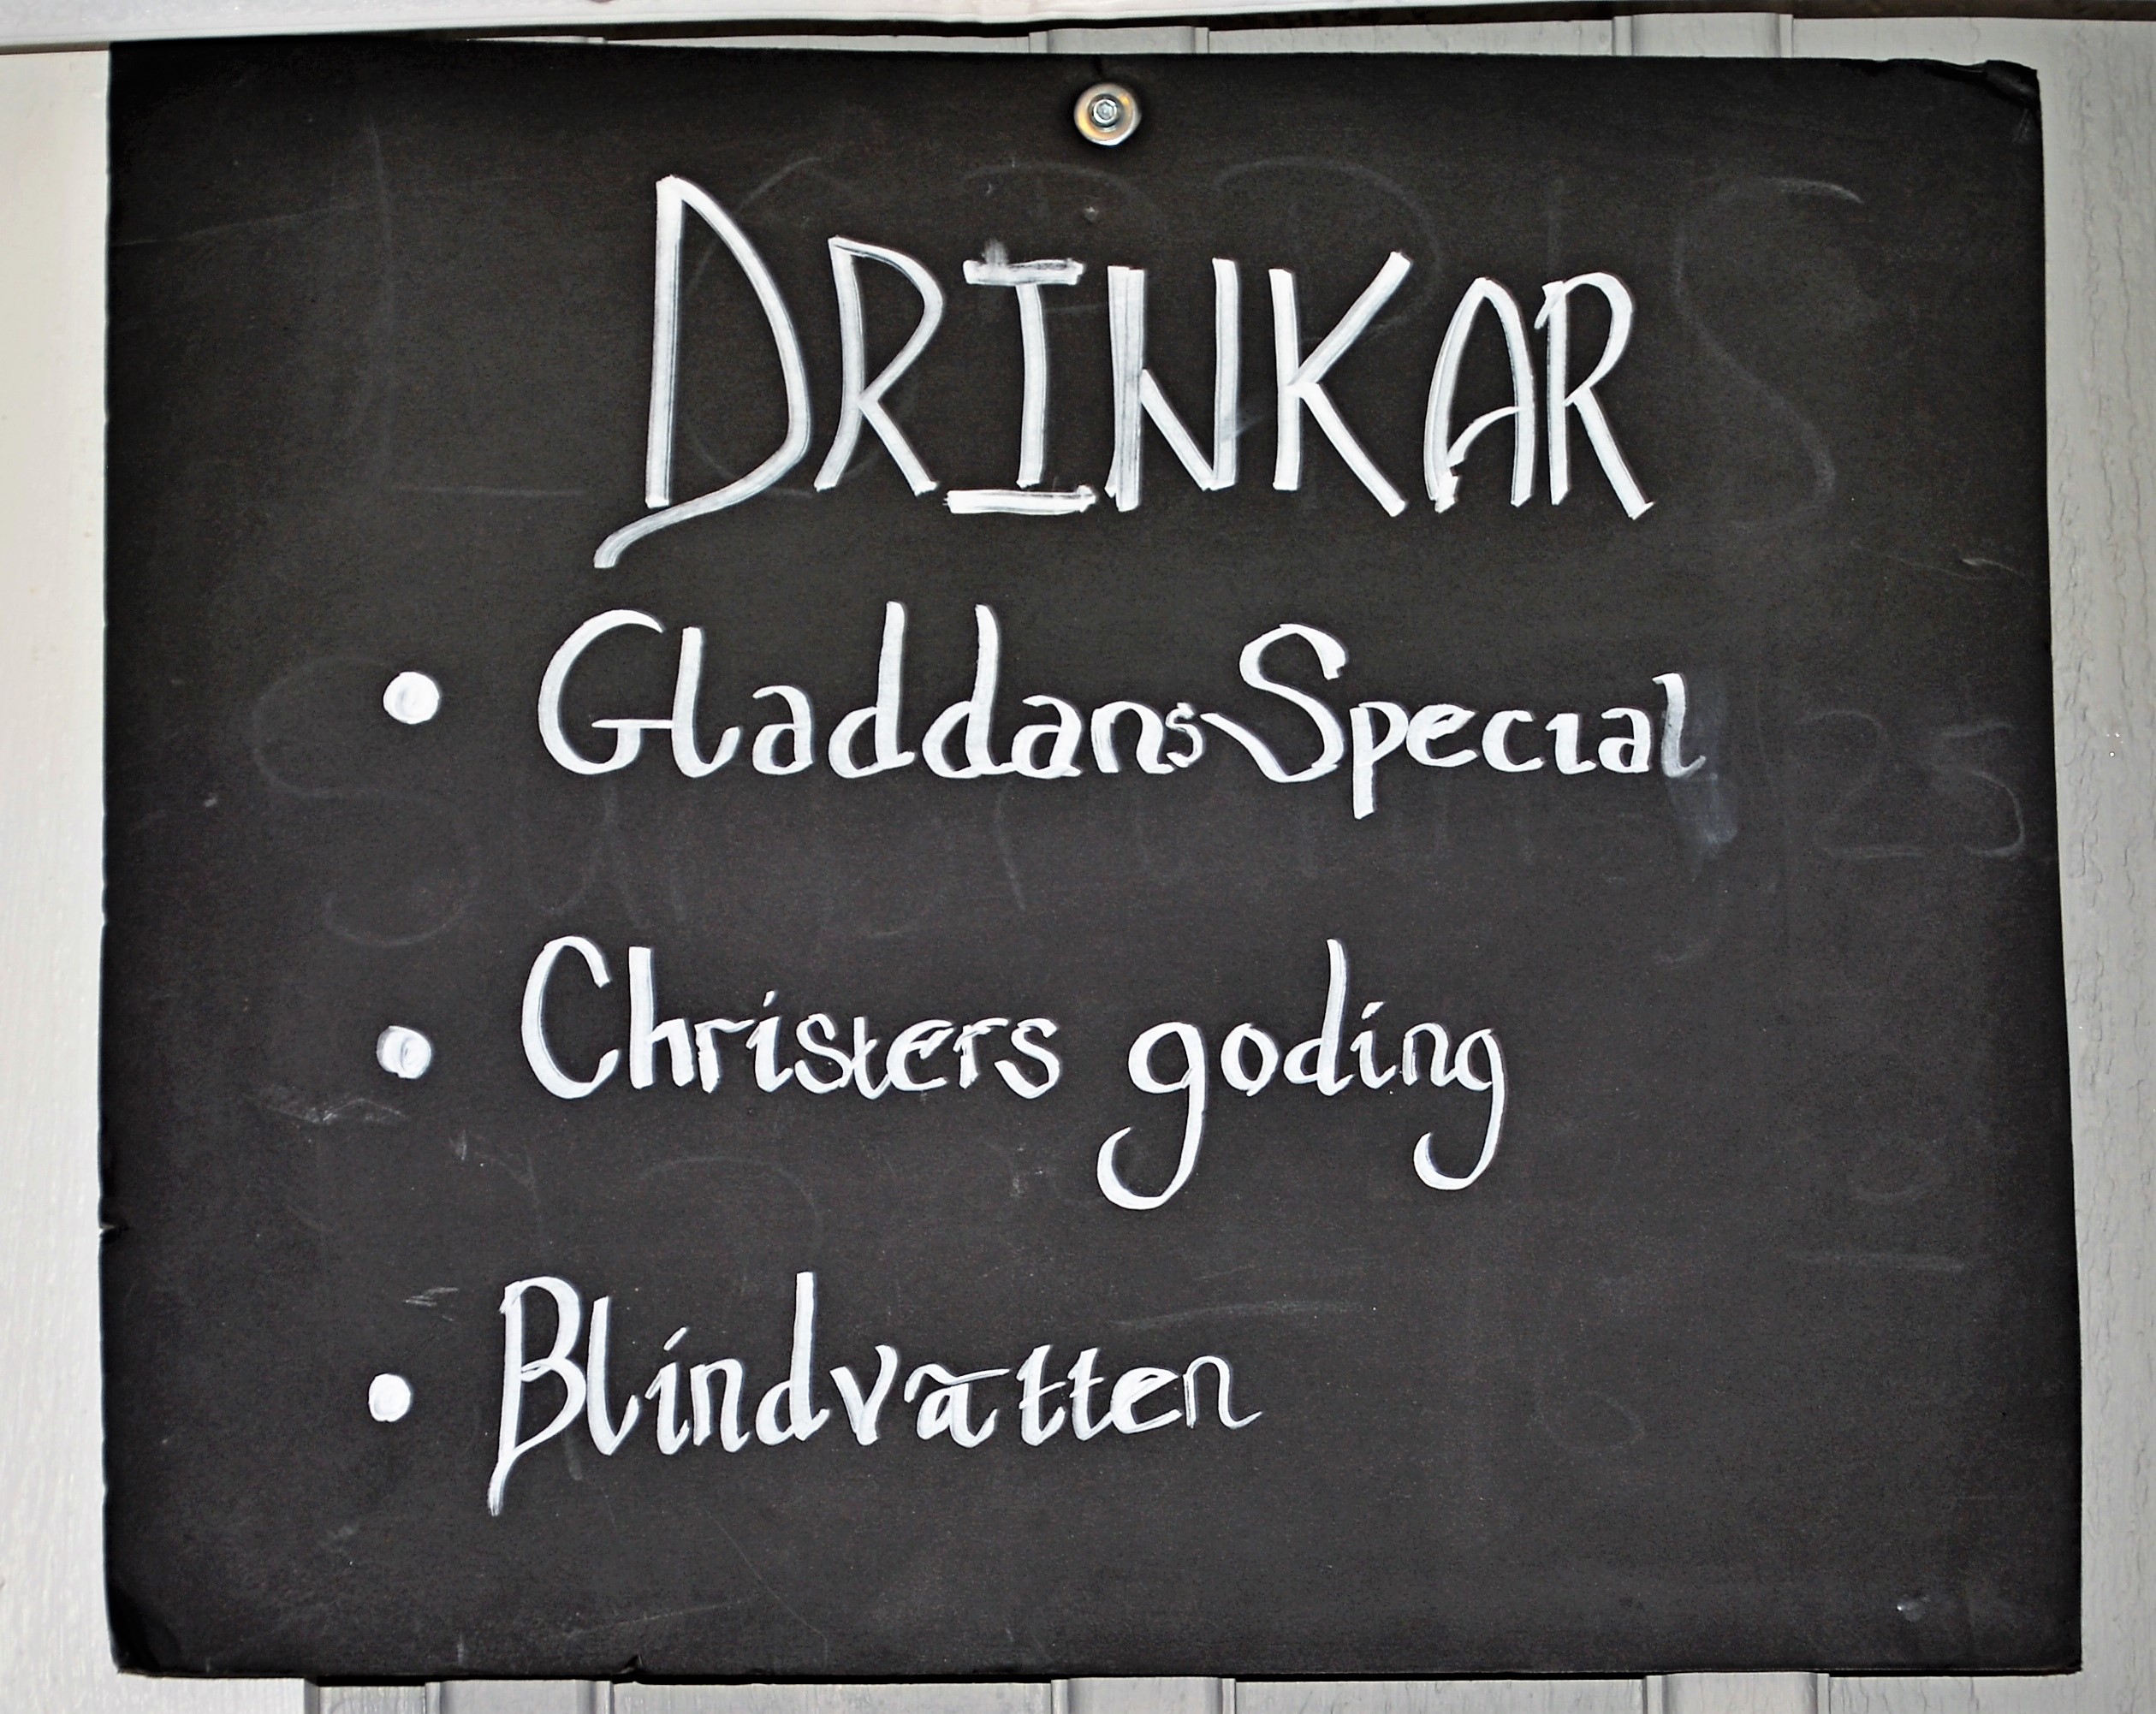 DRINKAR
• Gladdans Special
• Christers goding
• Blindvatten